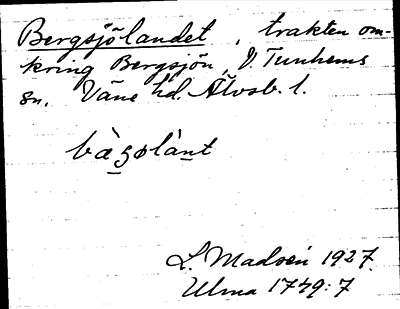 Bergsjölandet, trakten om-
kring Bergsjön, V. Tunhems
sn. Väne hd. Älvsb. l.
bæ̀ʒølànt
L. Madsén 1927.
Ulma 1749:7